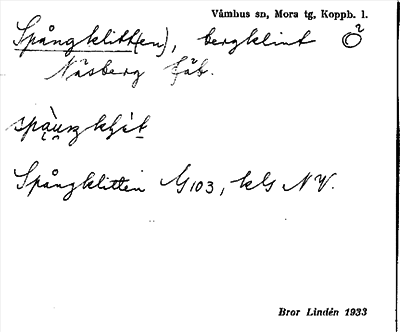 Våmhus sn, Mora tg, Koppb. l.
Spångklitt(en), bergklint
Näsberg fäb.
Spångklitten G103, kG NV.
Bror Lindén 1933